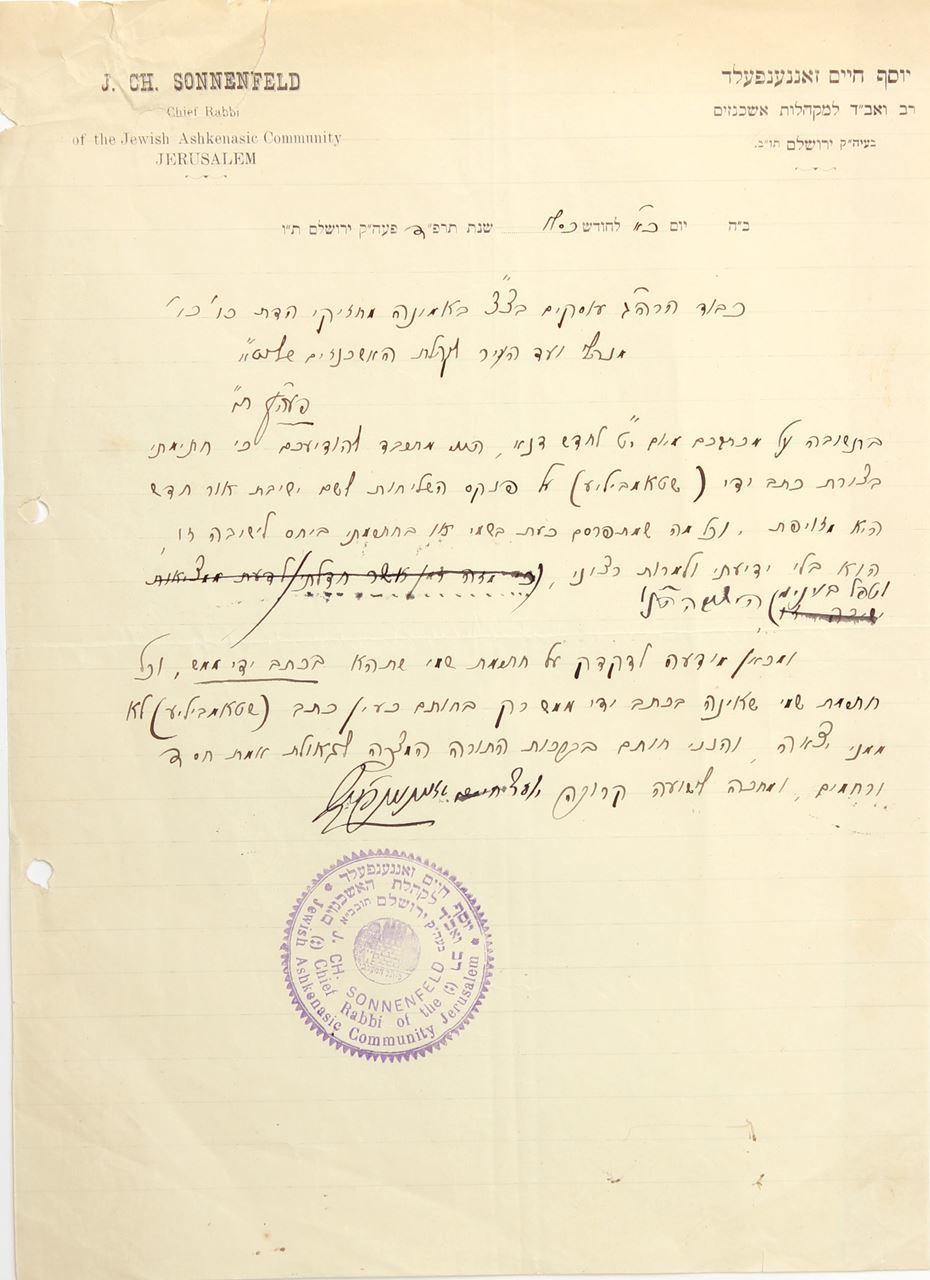 J. CH. SONNENFELD
Chief Rabbi
of the Jewish Ashkenasic Community
JERUSALEM
יוסף חיים זאננענפעלד
רב ואב״ד למקהלות אשכנזים
בעיה״ק ירושלם תוב״ב.
ב״ה יום כ״א לחודש כסלו שנת תרפ״ פעה״ק ירושלם ת״ו
כבוד הרה״ג עוסקים בצ״צ באמונה מחזיקי הדת כו׳ כו׳
ועד העיר לקהלת האשכנזים
פעה״ק
בתשובה על מכתבכם מיום י״ט לחדש דנא, הנני מתכבד להודיעכם כי חתימתי
בצורת כתב ידי (שטאמביליע) על פינקס השליחות לשם ישיבת אור חדש
היא מזויפת. וכל מה שמתפרסם כעת בשמי או בחתימתי ביחס לישיבה זו,
הוא בלי ידיעתי ולמרות רצוני,
ומכאן מודעה לדקדק על חתימת שמי שתהא בכתב ידי ממש, וכל
חותמת שמי שאינה בכתב ידי ממש רק בחותם כעין כתב (שטאמביליע) לא
ממני יצאה, והנני חותם בברכות התורה המצפה לגאולת אמת חסד
ורחמים, ומחכה לישועה קרובה יוסף חיים זאננענפעלד
יוסף חיים זאננענפעלד
רב ואב״ד לקהלת האשכנזים
בעה״ק ירושלם תובב״א
J. CH. SONNENFELD
Chief Rabbi of the
Jewish Ashkenasic Community Jerusalem